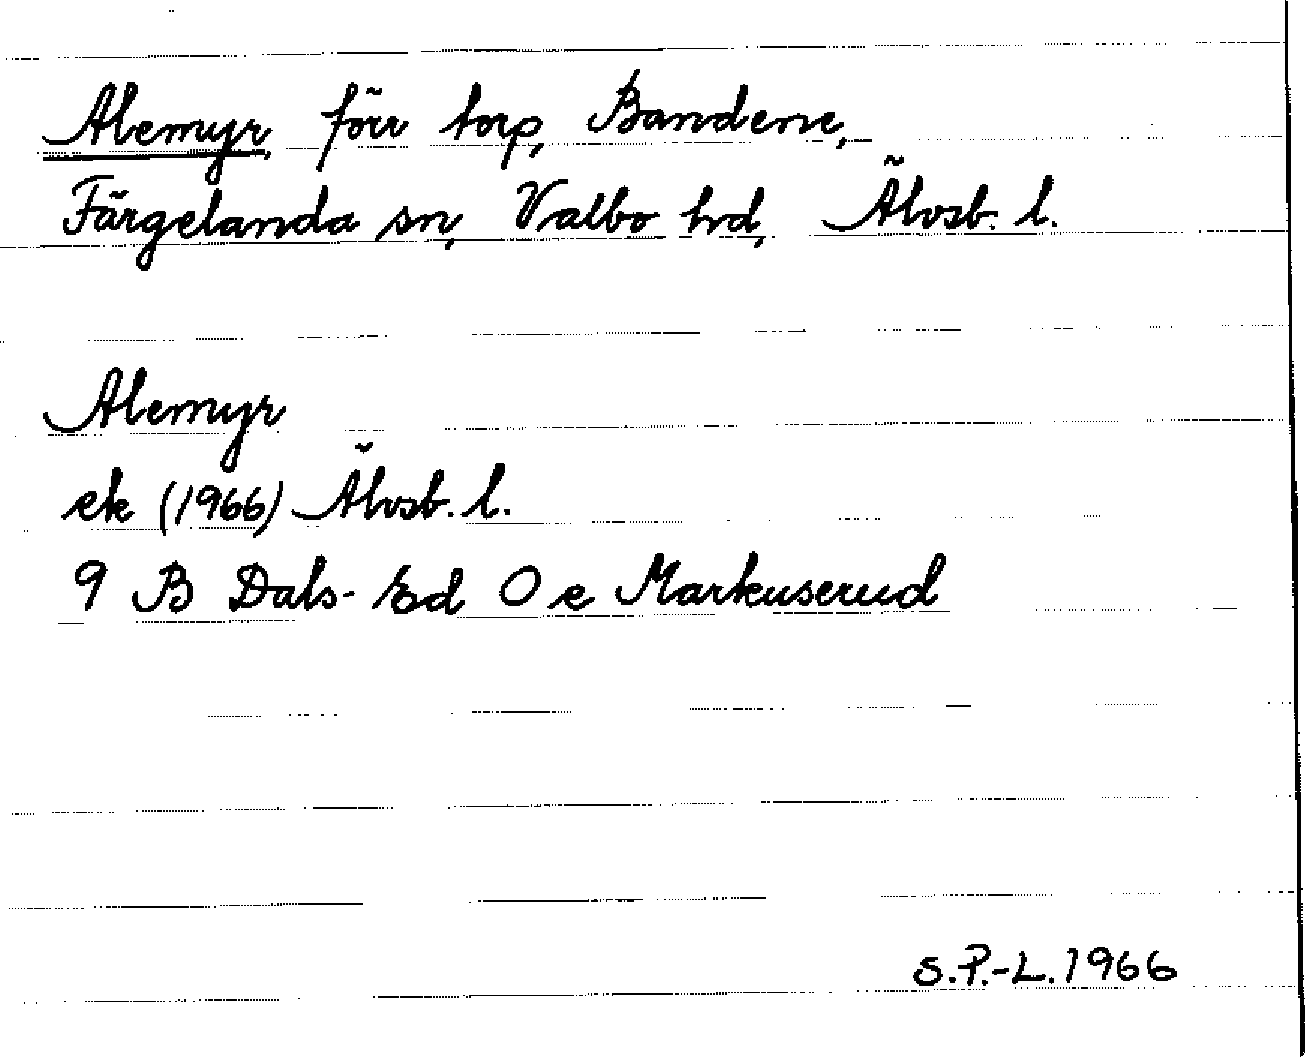 Alemyr, förr torp, Bandene,
Färgelanda sn, Valbo hd, Älvsb. l.
Alemyr
ek (1966) Älvsb. l.
9 B Dals-Ed O e Markuserud
S.P.-L. 1966